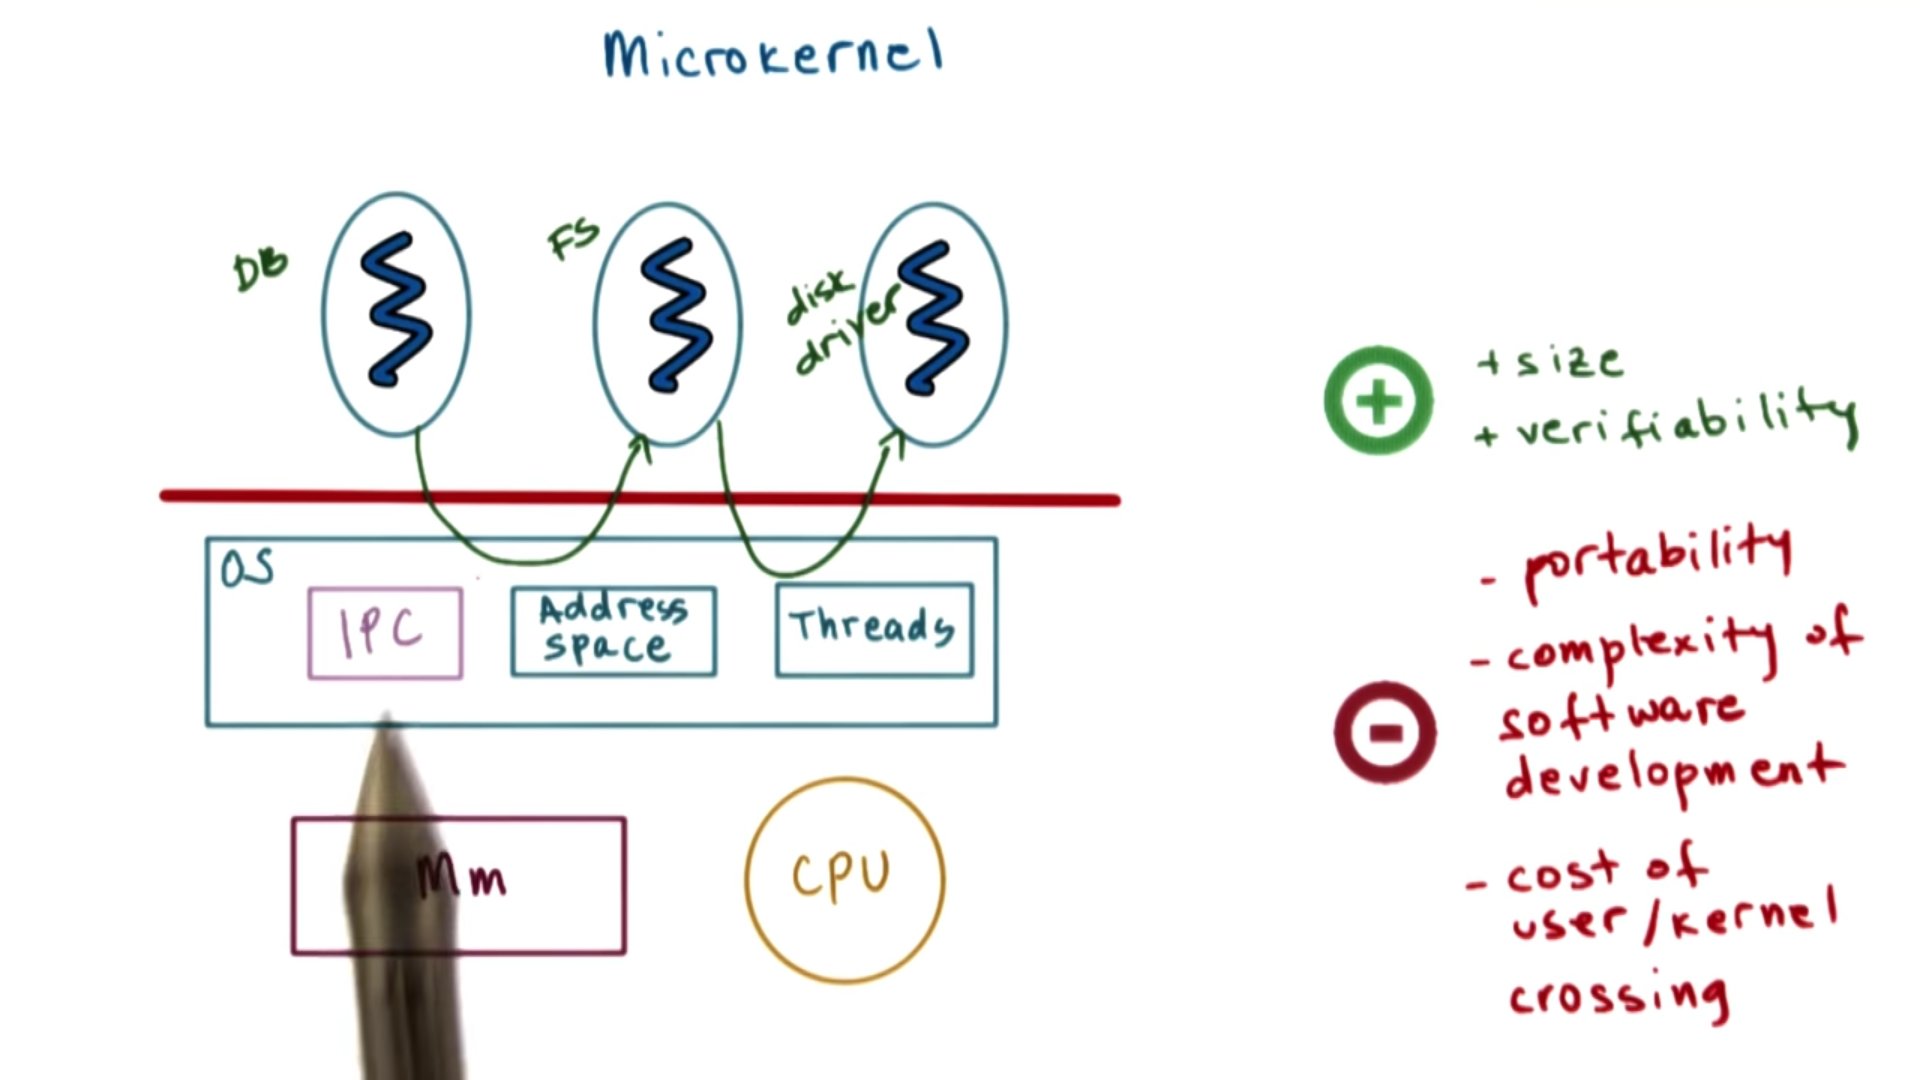 Microkernel
DB
FS
disk
driver
OS
IPC
Address
space
Threads
Mm
CPU
+ size
+ verifiability
- portability
- complexity of
software
development
- cost of
user/kernel
crossing